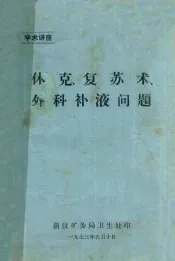 学术讲座
休克复苏术、
外科补液问题
新汶矿务局卫生处印
一九七三年五月十日